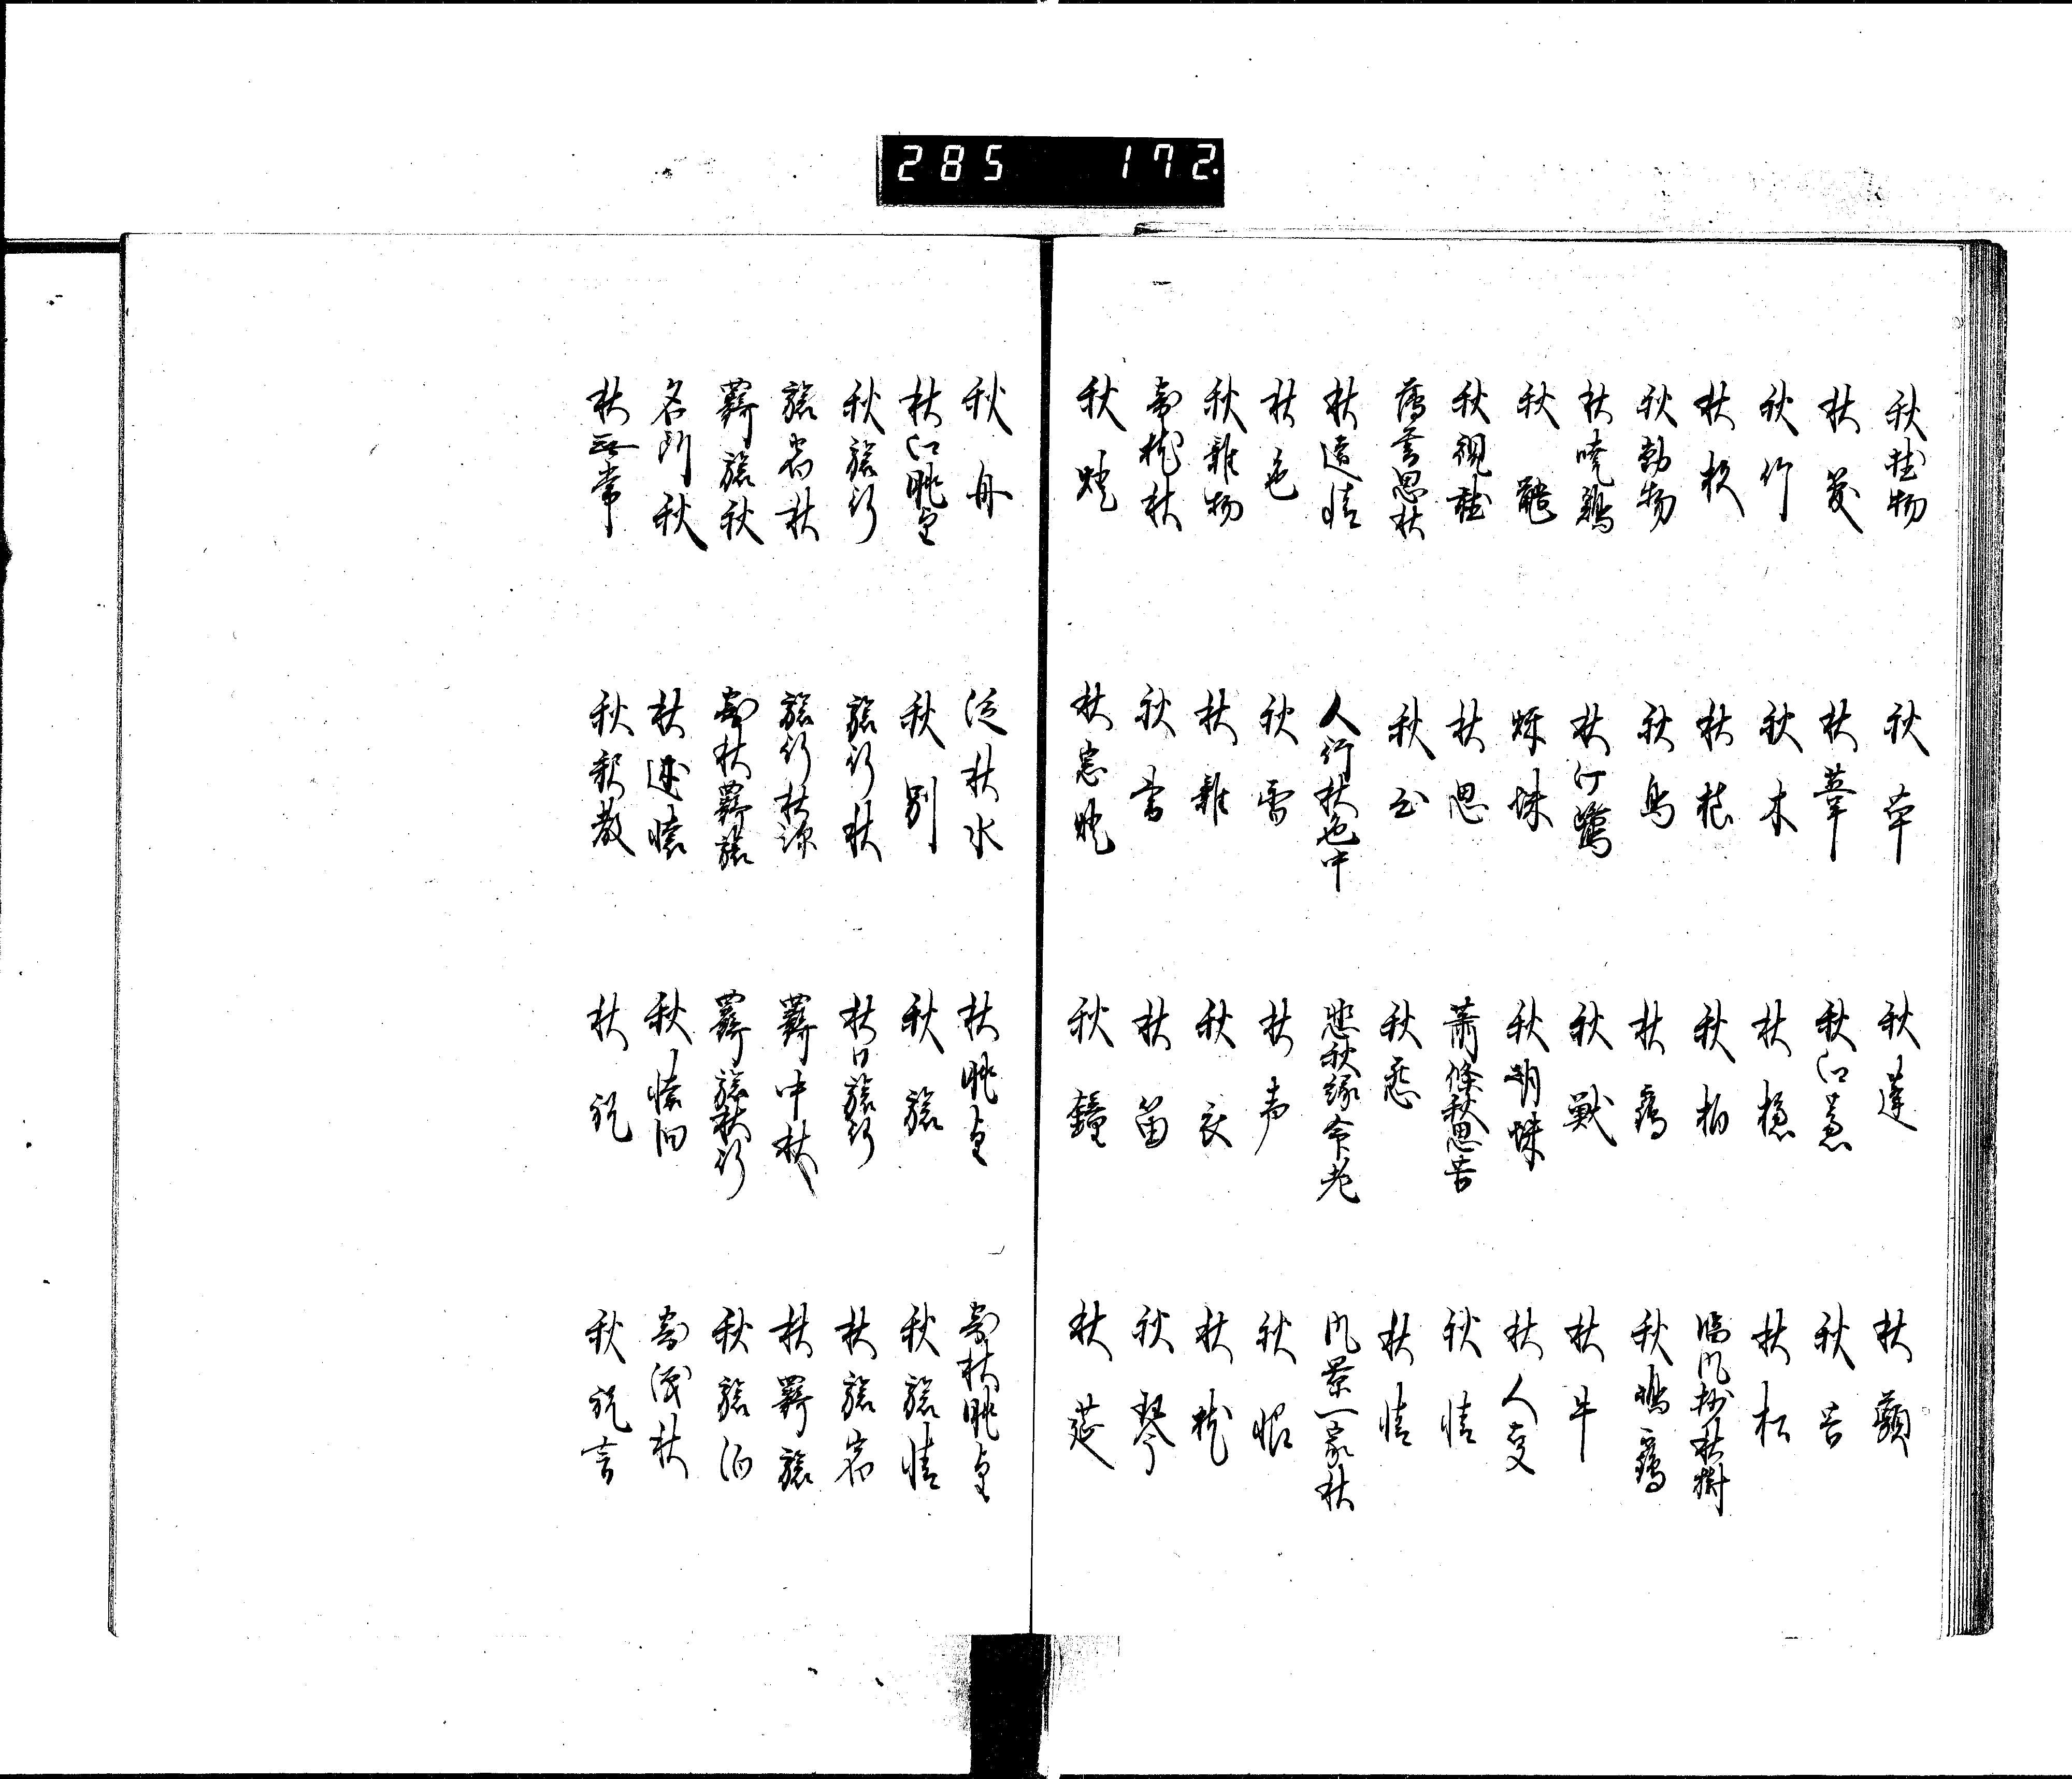 285 172
秋植物 秋草 秋蓮 秋蘋
秋葵 秋華 秋江蓼 秋苔
秋竹 秋木 秋穂 秋松
秋杉 秋桂 秋柏 臨風抄秋樹
秋動物 秋鳥 秋鶴 秋鳴鶴
秋暁鶏 秋汀鷺 秋獣 秋牛
秋 蛛 秋明 人事
秋視聴 秋思 蕭條秋思苦 秋情
書思秋 秋 秋恋 秋情
秋遠情 人行秋色中 悲秋縁命老 風景一家秋
秋色 秋雪 秋声 秋恨
秋雑物 秋雑 秋衣 秋枕
寄枕秋 秋書 秋笛 秋琴
秋 秋窓 秋鐘 秋莚
秋舟 泛秋水 秋眺望 寄秋眺望
秋江眺望 秋別 秋旅 秋旅情
秋旅行 旅行秋 秋日旅行 秋旅宿
旅宿秋 旅行秋 羇中秋 秋羇旅
羇旅秋 寄秋羇旅 羇旅秋行 秋旅泊
名所秋 秋述懐 秋懐旧 寄 秋
秋無常 秋釈教 秋祝 秋祝言